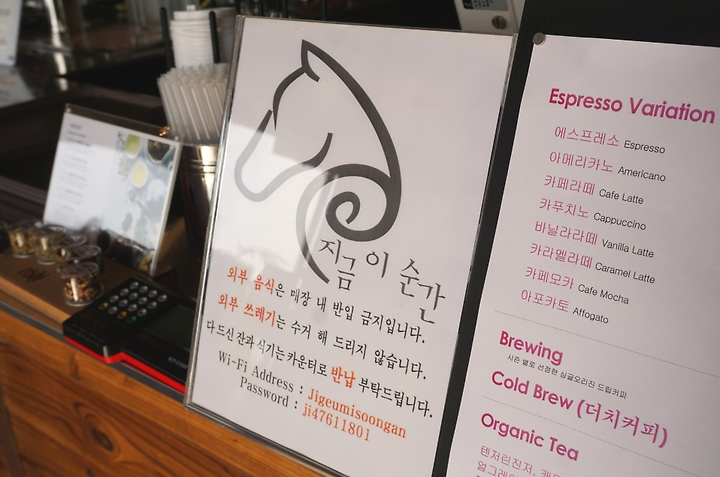 지금 이 순간
외부 음식은 매장 내 반입 금지입니다.
외부 쓰레기는 수거 해 드리지 않습니다.
다 드신 잔과 식기는 카운터로 반납 부탁드립니다.
Wi-Fi Address : Jigeumisoongan
Password : ji47611801
Espresso Variation
에스프레소 Espresso
아메리카노 Americano
카페라떼 Cafe Latte
카푸치노 Cappuccino
바닐라라떼 Vanilla Latte
카라멜라떼 Caramel Latte
카페모카 Cafe Mocha
아포카토 Affogato
Brewing
시즌 별로 선정한 싱글오리진 드립커피
Cold Brew (더치커피)
Organic Tea
텐저린진저,
얼그레이